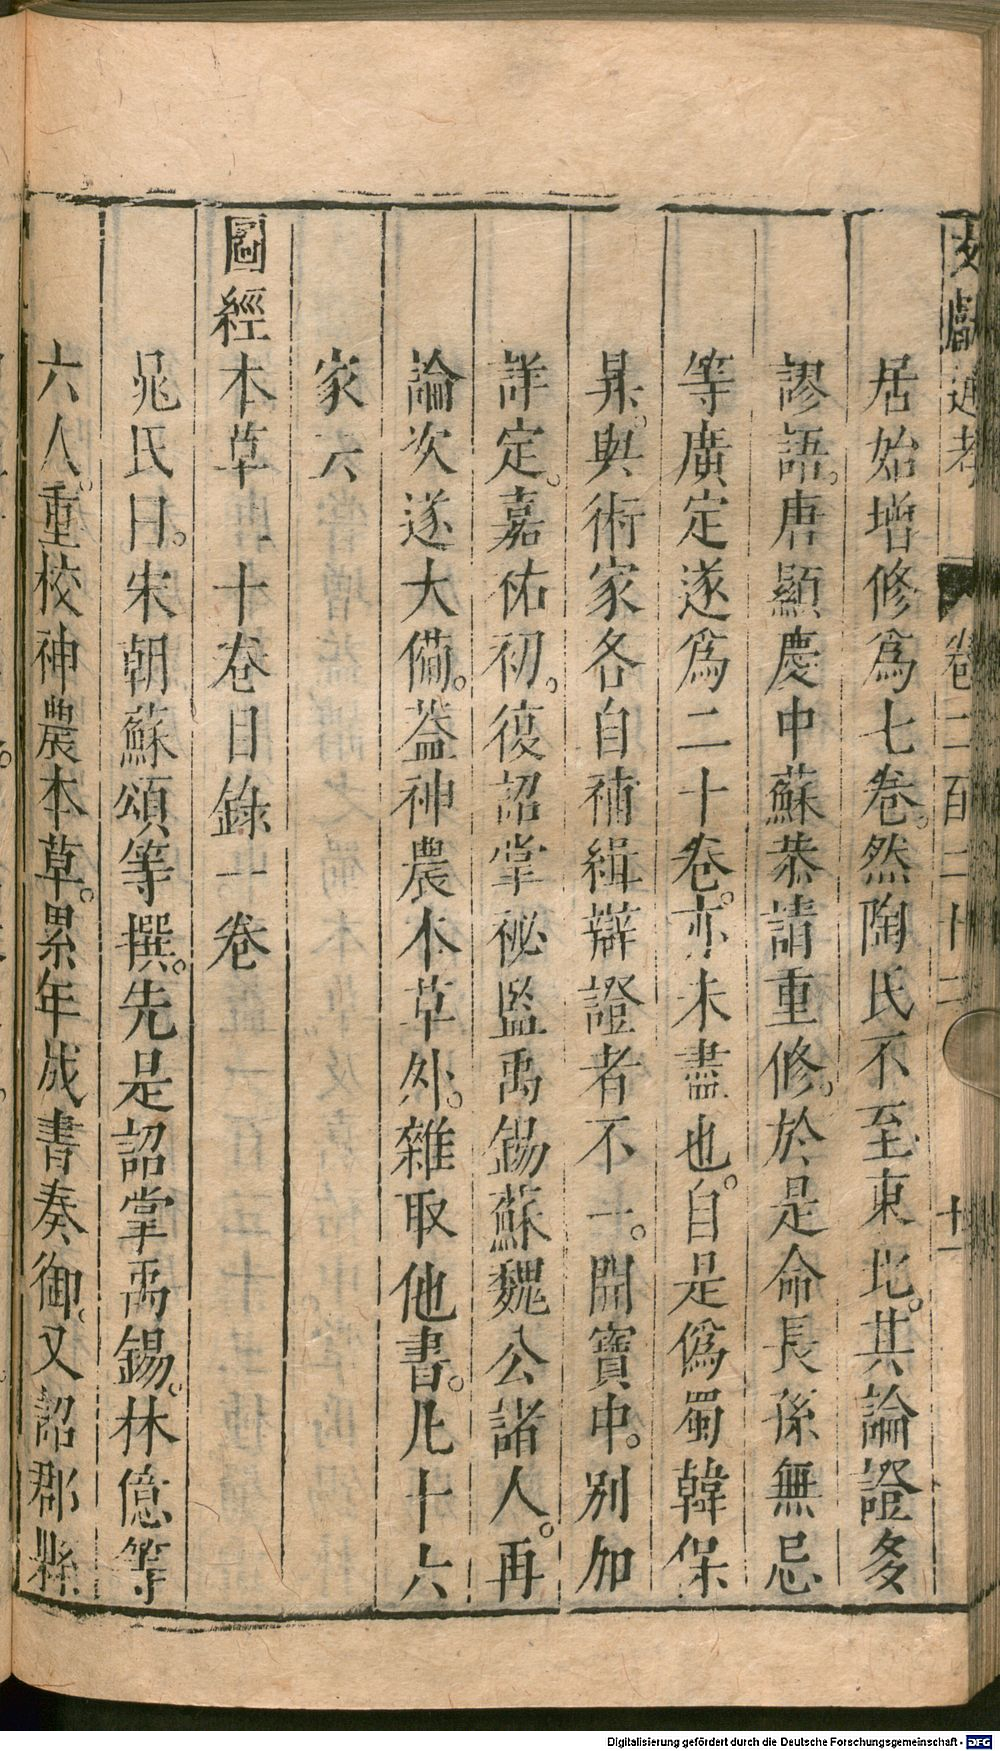 文獻通考 卷二百二十二 十一
居始增修爲七卷。然陶氏不至東北。其論證多
謬語。唐顯慶中蘇恭請重修。於是命長孫無忌
等廣定遂爲二十卷。亦未盡也。自是僞蜀韓保
昇。與術家各自補緝辯證者不一。開寶中。別加
詳定。嘉祐初。復詔掌祕監禹錫蘇魏公諸人。再
論次遂大備。葢神農本草外。雜取他書。凡十六
家六
圖經本草二十卷目錄一卷
晁氏曰。宋朝蘇頌等撰。先是詔掌禹錫。林億等
六人。重校神農本草。累年成書奏御。又詔郡縣
Digitalisierung gefördert durch die Deutsche Forschungsgemeinschaft - DFG